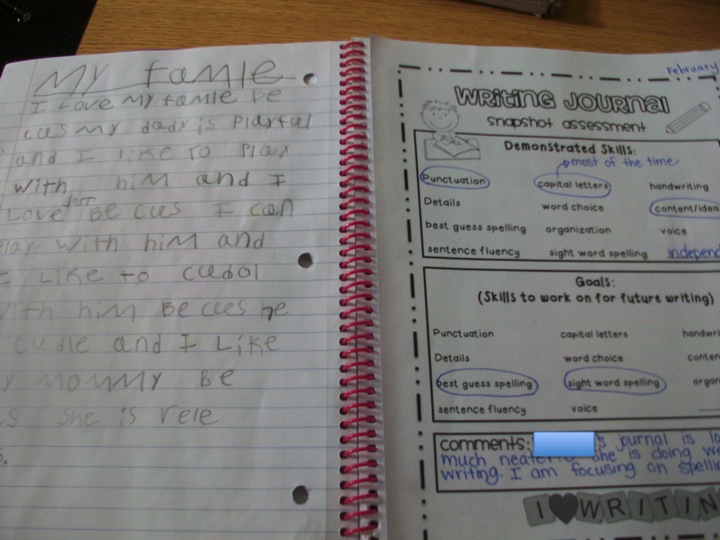 MY famIe
I Love My famIe Be
cas my dady is PLayful
and I like To PLay
with him and I
Love Be cues I can
play with him and
I Like to cudol
with him Be cues he
cudle and I Like
MY MOMMY Be
she is vere
February
WRiting JOURNal
snapshot assessment
Demonstrated Skills:
most of the time
Punctuation capital letters handwriting
Details word choice content/idea
best guess spelling organization voice
sentence fluency sight word spelling independ
Goals:
(Skills to work on for future writing)
Punctuation capital letters handwri
Details word choice conten
best guess spelling sight word spelling organ
sentence fluency voice
comments: 's journal is
much neater. She is doing
writing. I am focusing on
I WRITIN